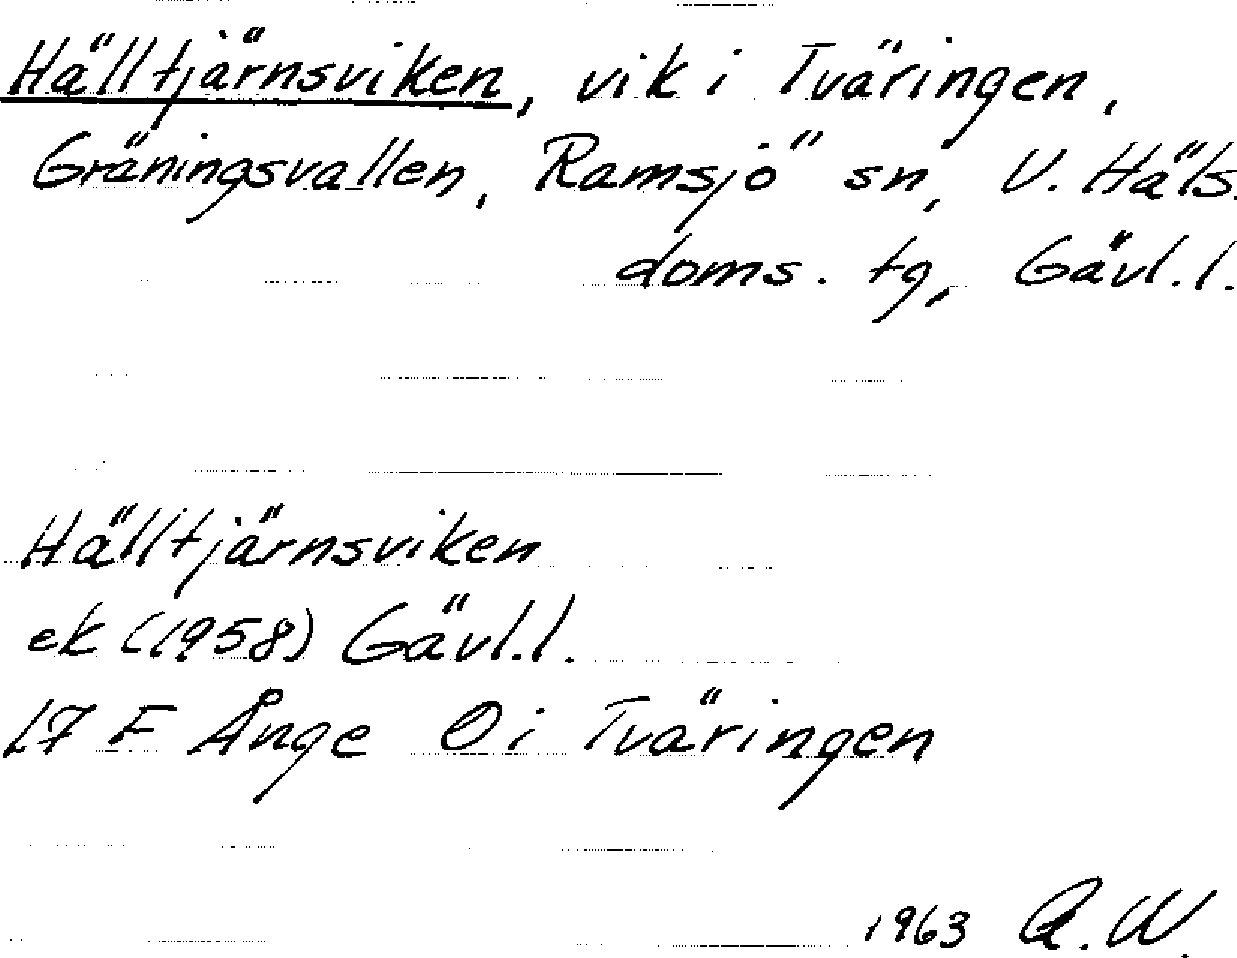 Hälltjärnsviken, vik i Tväringen,
Gräningsvallen, Ramsjö sn, V. Häls.
doms. tg, Gävl.l.
Hälltjärnsviken
ek (1958) Gävl.l.
17 F Ånge O i Tväringen
1963 R.W.